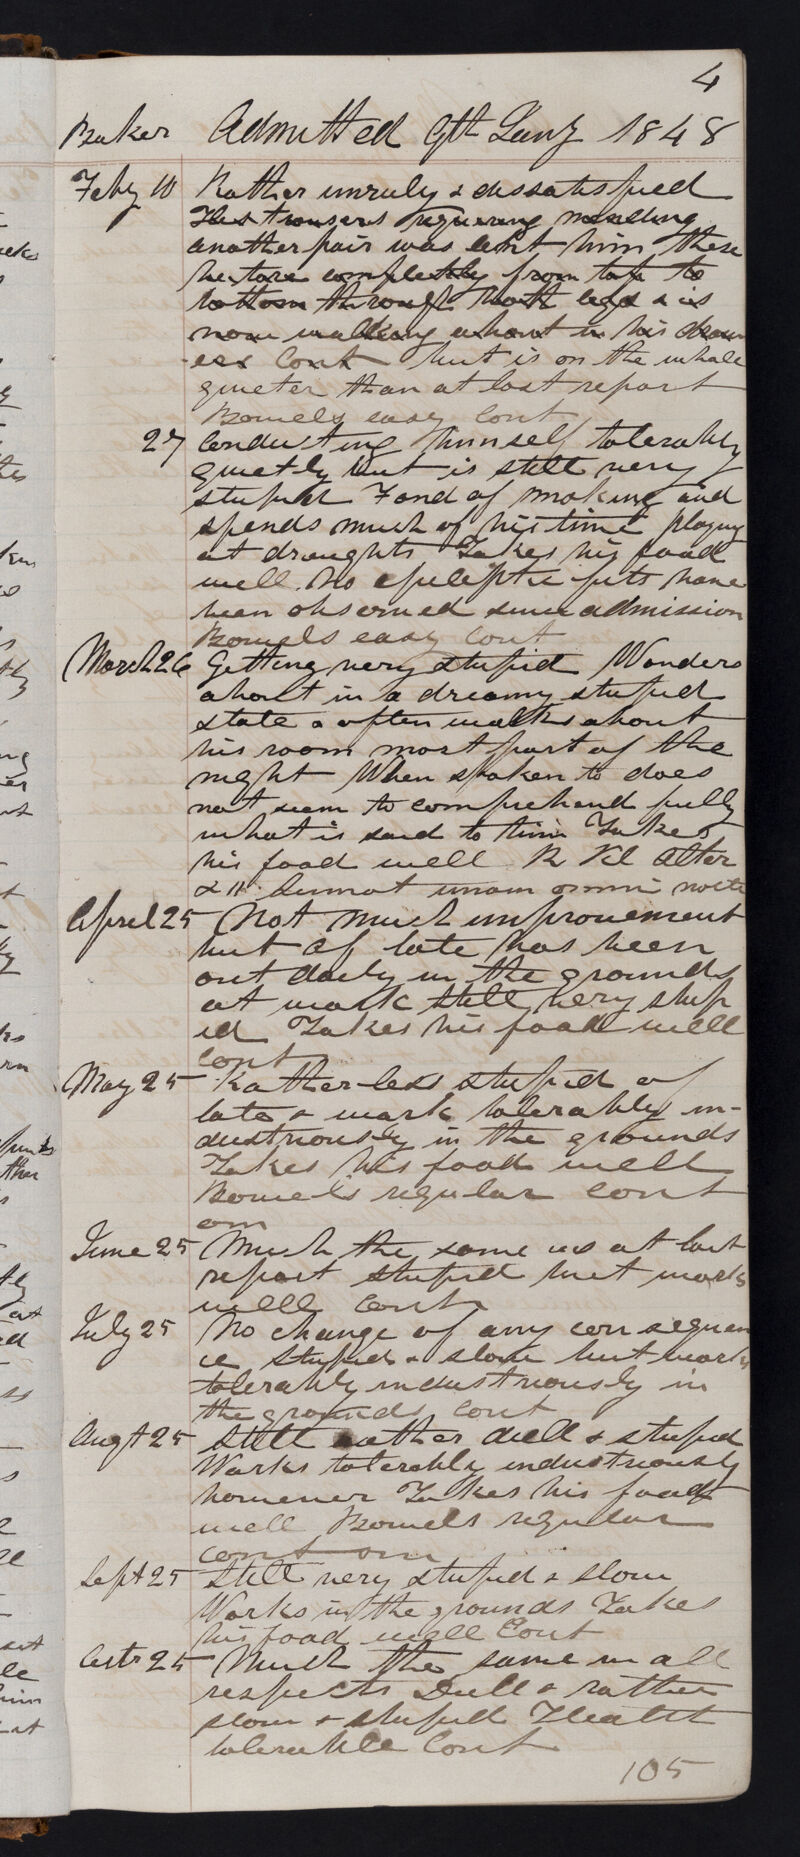 4
Baker Admitted 9th Jany 1848
Feby 10 Rather unruly & dissatisfied
His trousers requiring mending
another pair was lent him these
he tore completely from top to
bottom through both legs & is
now walking about in his draw
ers Cont but is on the whole
quieter than at last report
Bowels easy Cont
27 Conducting himself tolerably
quietly but is still very
stupid Fond of smoking and
spends much of his time playing
at draughts Takes his food
well. No epileptic fits have
been observed since admission
Bowels easy Cont
March 26 Getting very stupid Wanders
about in a dreamy stupid
state & often walks about
his room most part of the
night When spoken to does
not seem to comprehend fully
what is said to him Takes
his food well R Pil Alter
unam omni nocte
April 25 Not much improvement
but of late has been
out daily in the grounds
at work Still very stup
id Takes his food well
Cont
May 25 Rather less stupid of
late & work tolerably in-
dustriously in the grounds
Takes his food well
Bowels regular Cont
om
June 25 Much the same as at last
report stupid but works
well Cont
July 25 No change of any consequen
ce stupid & slow but works
tolerably industriously in
the grounds Cont
Augt 25 Still rather dull & stupid
Works tolerably industriously
however Takes his food
well Bowels regular
Cont om
Sept 25 Still very stupid & slow
Works in the grounds Takes
his food well Cont
Octr 25 Much the same in all
respects Dull & rather
slow & stupid Health
tolerable Cont
105